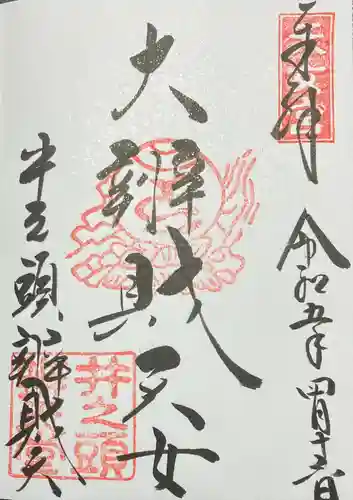 奉拝
令和五年四月十六日
大辨財天女
井之頭辨財天
井之頭